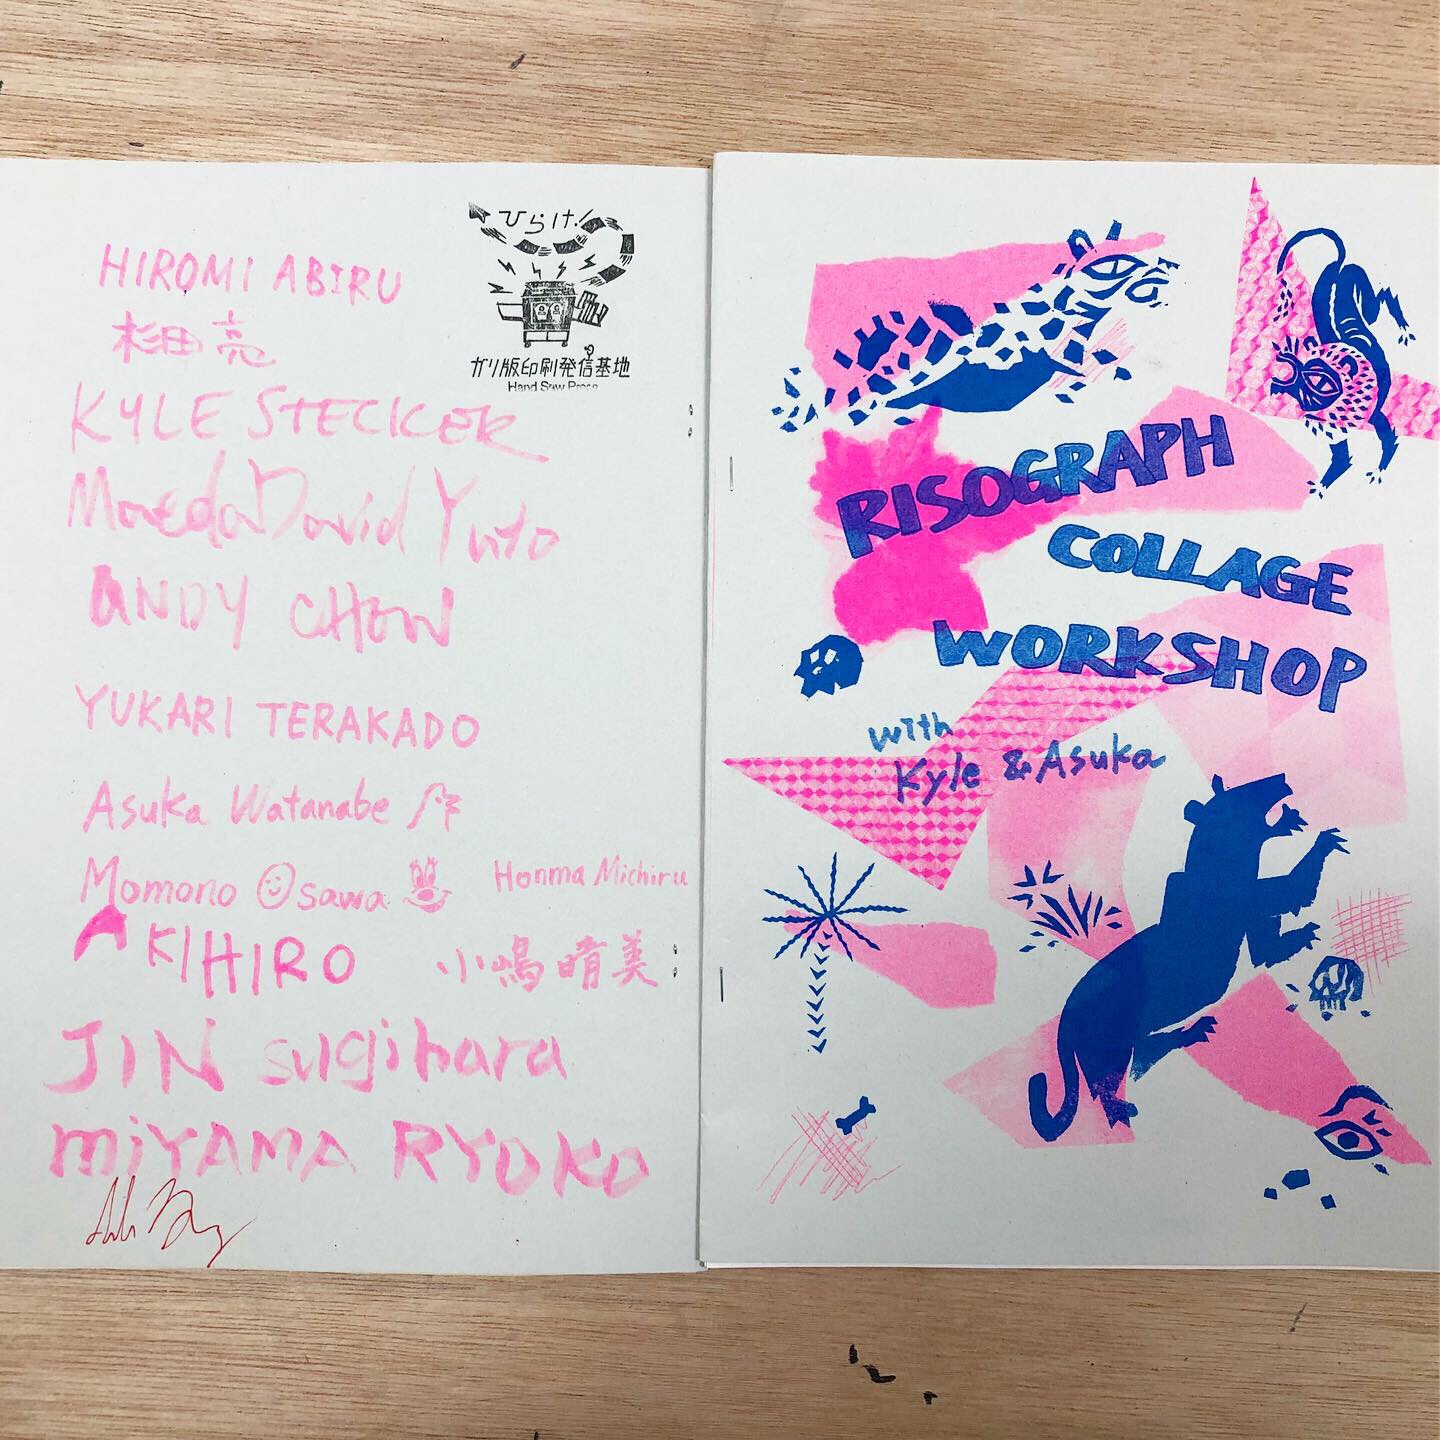 ひらけ!
ガリ版印刷発信基地
Hand Saw Press
HIROMI ABIRU
杉田 亮
KYLE STECKER
Maeda David Yuto
ANDY CHOW
YUKARI TERAKADO
Asuka Watanabe
Momono Osawa
Honma Michiru
AKIHIRO
小嶋晴美
JIN sugihara
miYAMA RYOKO
RISOGRAPH
COLLAGE
WORKSHOP
with
Kyle & Asuka